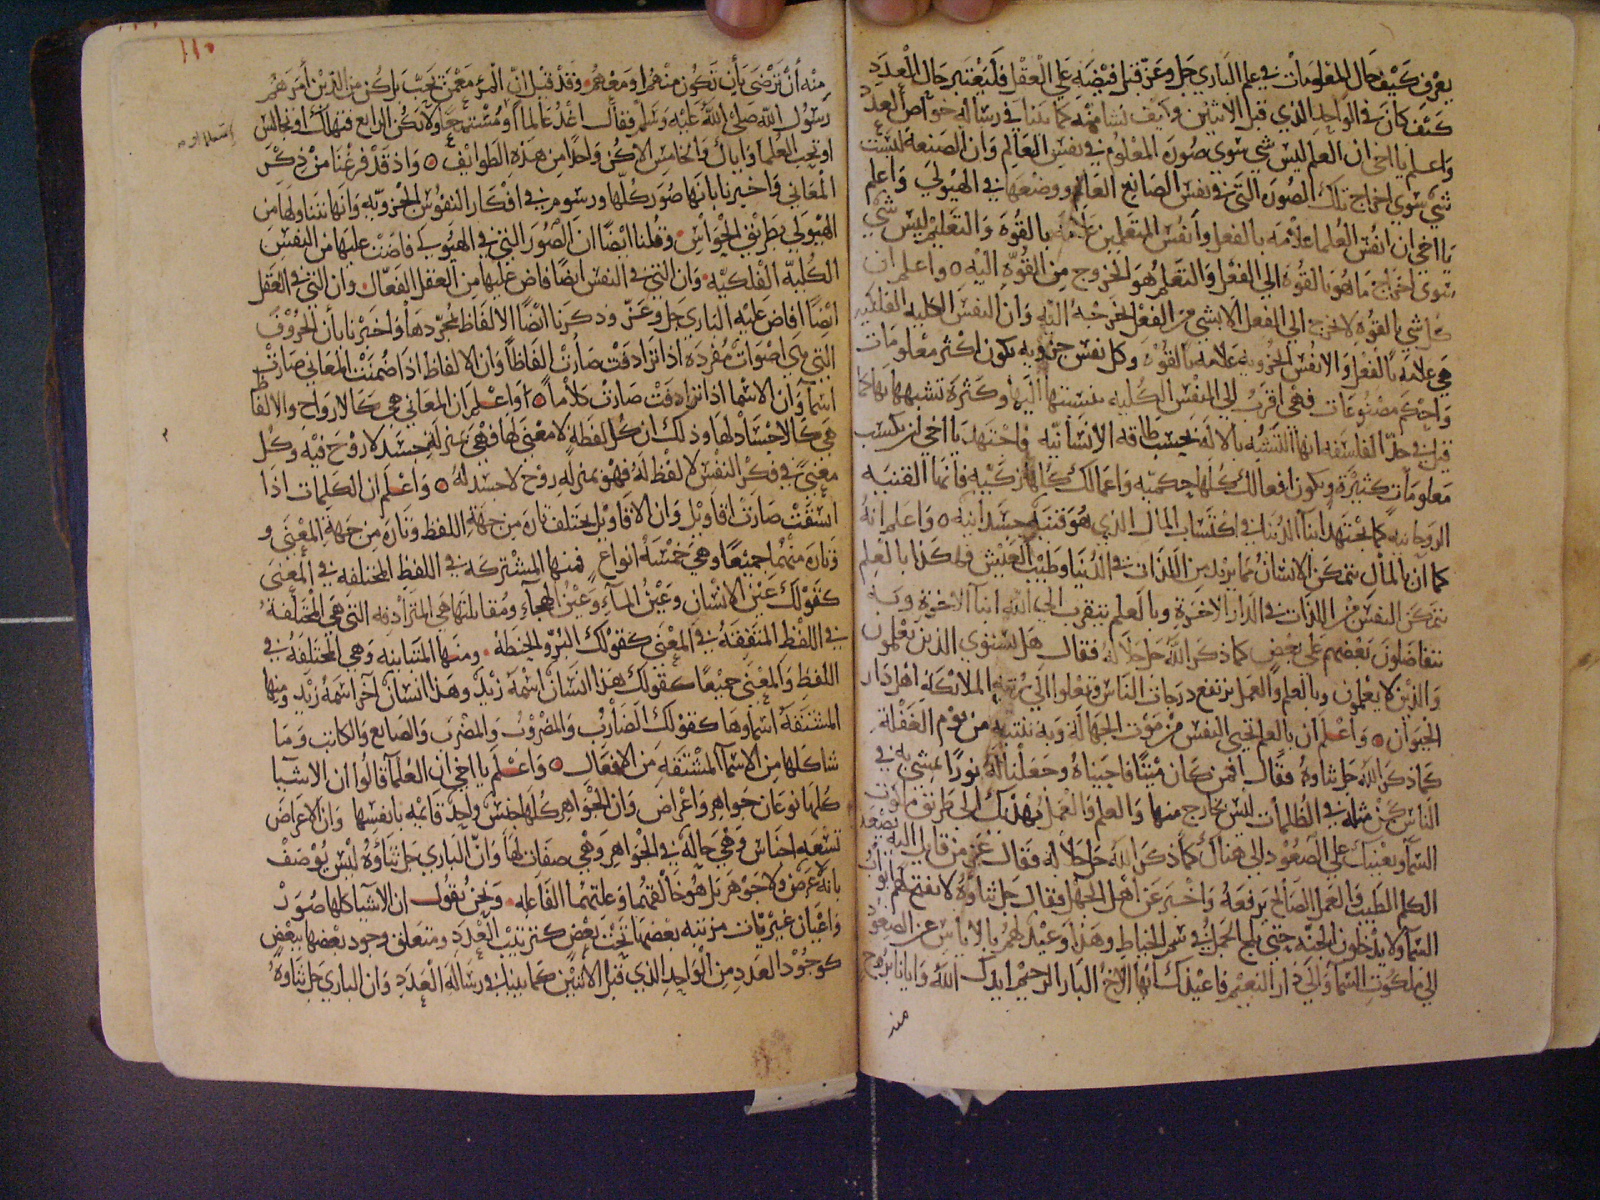 يعرف كيف حال المعلومات في علم الباري جل وعز قبل فيضه علي العقل فليعتبر حال العدد
كيف كان في الواحد الذي قبل الاثنين وكيف نشا منه كما بينا في رسالة خواص العدد
واعلم يا اخي ان العلم ليس شي سوي صورة المعلوم في نفس العالم وان الصنعة ليست
شي سوي اخراج تلك الصورة التي في نفس الصانع العالم ووضعها في الهيولي واعلم
يا اخي ان انفس العلما علامة بالفعل وانفس المتعلمين علامة بالقوة والتعليم ليس شي
سوي اخراج ما هو بالقوة الي الفعل والتعلم هو الخروج من القوة اليه واعلم ان
كل شي بالقوة لا يخرج الي الفعل الا بشي من الفعل اخرجه اليه وان النفس الكلية الفلكية
هي علامة بالفعل والانفس الجزوية علامة بالقوة وكل نفس جزوية يكون اكثر معلومات
واحكم مصنوعات فهي اقرب الي النفس الكلية نسبتها اليها وكثرة تشبهها بها كما
قيل في حد الفلسفة انها التشبه بالاله بحسب طاقة الانسانية فاجتهد يا اخي ان يكسب
معلومات كثيرة ويكون افعالك كلها حكمية واعمالك كلها زكية فانها القنية
الروحانية كما يجتهد ابنا الدنيا في اكتساب المال الذي هو قنية جسدانية واعلم انه
كما ان بالمال يتمكن الانسان مما يريد من اللذات في الدنيا وطيب العيش فهكذا بالعلم
تتمكن النفس من اللذات في الدار الاخرة وبالعلم يتقرب الي الله ابنا الاخرة وبه
يتفاضلون بعضهم علي بعض كما ذكر الله جل جلاله فقال هل يستوي الذين يعلمون
والذين لا يعلمون وبالعلم والعمل يرتفع درجات الناس وتعلوا الي رتبة الملائكة اهل دار
الحيوان واعلم ان بالعلم تحيي النفس من موت الجهالة وبه تنتبه من نوم الغفلة
كما ذكر الله جل ثناوه فقال افمن كان ميتا فاحييناه وجعلنا له نورا يمشي به في
الناس كمن مثله في الظلمات ليس بخارج منها والعلم والعمل يهديك الي طريق ملكوت
السما ويعينك علي الصعود الي هناك كما ذكر الله جل جلاله فقال عز من قايل اليه يصعد
الكلم الطيب والعمل الصالح يرفعه واخبر عن اهل الجهل فقال جل ثناوه لا تفتح لهم ابواب
السما ولا يدخلون الجنة حتي يلج الجمل في سم الخياط وهذا وعيد لهم بالاياس عن الصعود
الي ملكوت السما والي دار النعيم فاعيذك ايها الاخ البار الرحيم ايدك الله وايانا بروح
منه
١١٠
منه أن ترضي بأن تكون منهم او معهم وقد قيل ان المرء مع من يحب بل كن من الذين أمرهم
رسول الله صلى الله عليه وسلم فقال اغد عالما أو مستمعا ولا تكن الرابع فتهلك او تجالس
او تحب العلما واياك والخامس الا تكن واحدا من هذه الطوائف واذ قد فرغنا من ذكر
المعاني واخبرنا بانها صور كلها ورسوم في افكار النفوس الجزوية وانها تتناولها من
الهيولي بطريق الحواس وقلنا ايضا ان الصور التي في الهيولي فاضت عليها من النفس
الكلية الفلكية وان التي في النفس ايضا فاض عليها من العقل الفعال وان التي في العقل
ايضا افاض عليه الباري جل وعز وذكرنا ايضا الالفاظ بمجردها واخبرنا بان الحروف
التي هي اصوات مفردة اذا ترادفت صارت الفاظا وان الالفاظ اذا ضمنت المعاني صارت
اسما وان الاسما اذا ترادفت صارت كلاما واعلم ان المعاني هي كالارواح والالفاظ
هي كالاجساد لها وذلك ان كل لفظة لا معني لها فهي بمنزلة جسد لا روح فيه وكل
معني في فكر النفس لا لفظ له فهو بمنزلة روح لا جسد له واعلم ان الكلمات اذا
اتسقت صارت اقاويل وان الاقاويل يختلف تارة من جهة اللفظ وتارة من جهة المعني و
وتارة منهما جميعا وهي خمسة انواع فمنها المشتركة في اللفظ المختلفة في المعني
كقولك عين الانسان وعين الماء وعين الهجاء ومقابلتها هي المترادفة التي هي المختلفة
في اللفظ المتفقة في المعني كقولك البر والحنطة ومنها المتباينة وهي المختلفة في
اللفظ والمعني جميعا كقولك هذا انسان اسمه زيد وهذا انسان آخر اسمه زيد ومنها
المشتقة اسماوها كقولك الضارب والمضروب والمضرب والصانع والكاتب وما
شاكلها من الاسما المشتقة من الافعال واعلم يا اخي ان العلما قالوا ان الاشيا
كلها نوعان جواهر واعراض وان الجواهر كلها جنس واحد قايمة بانفسها وان الاعراض
تسعة اجناس وهي حالة في الجواهر وهي صفات لها وان الباري جل ثناؤه ليس يوصف
بانه عرض ولا جوهر بل هو خالقهما وعلتهما الفاعلة ونحن نقول ان الاشيا كلها صور
واعيان غيريات مرتبة بعضها تحت بعض كترتيب العدد ومتعلق وجود بعضها ببعض
كوجود العدد من الواحد الذي قبل الاثنين كما بينا في رسالة العدد وان الباري جل ثناوه